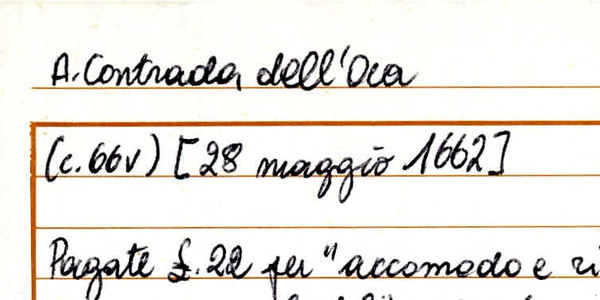 A. Contrada dell'Oca
(c. 66v) [28 maggio 1662]
Pagate £. 22 per "accomodo e ri